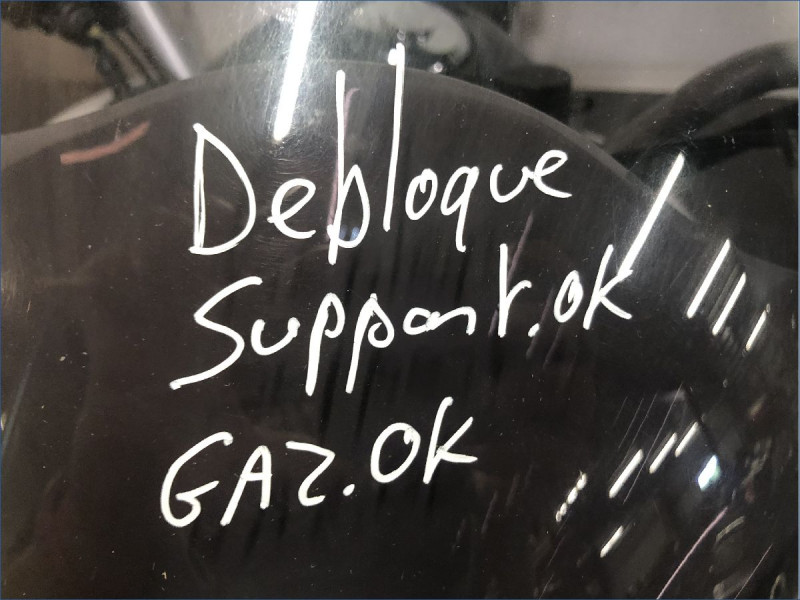 Debloque
Support.OK
GAZ.OK